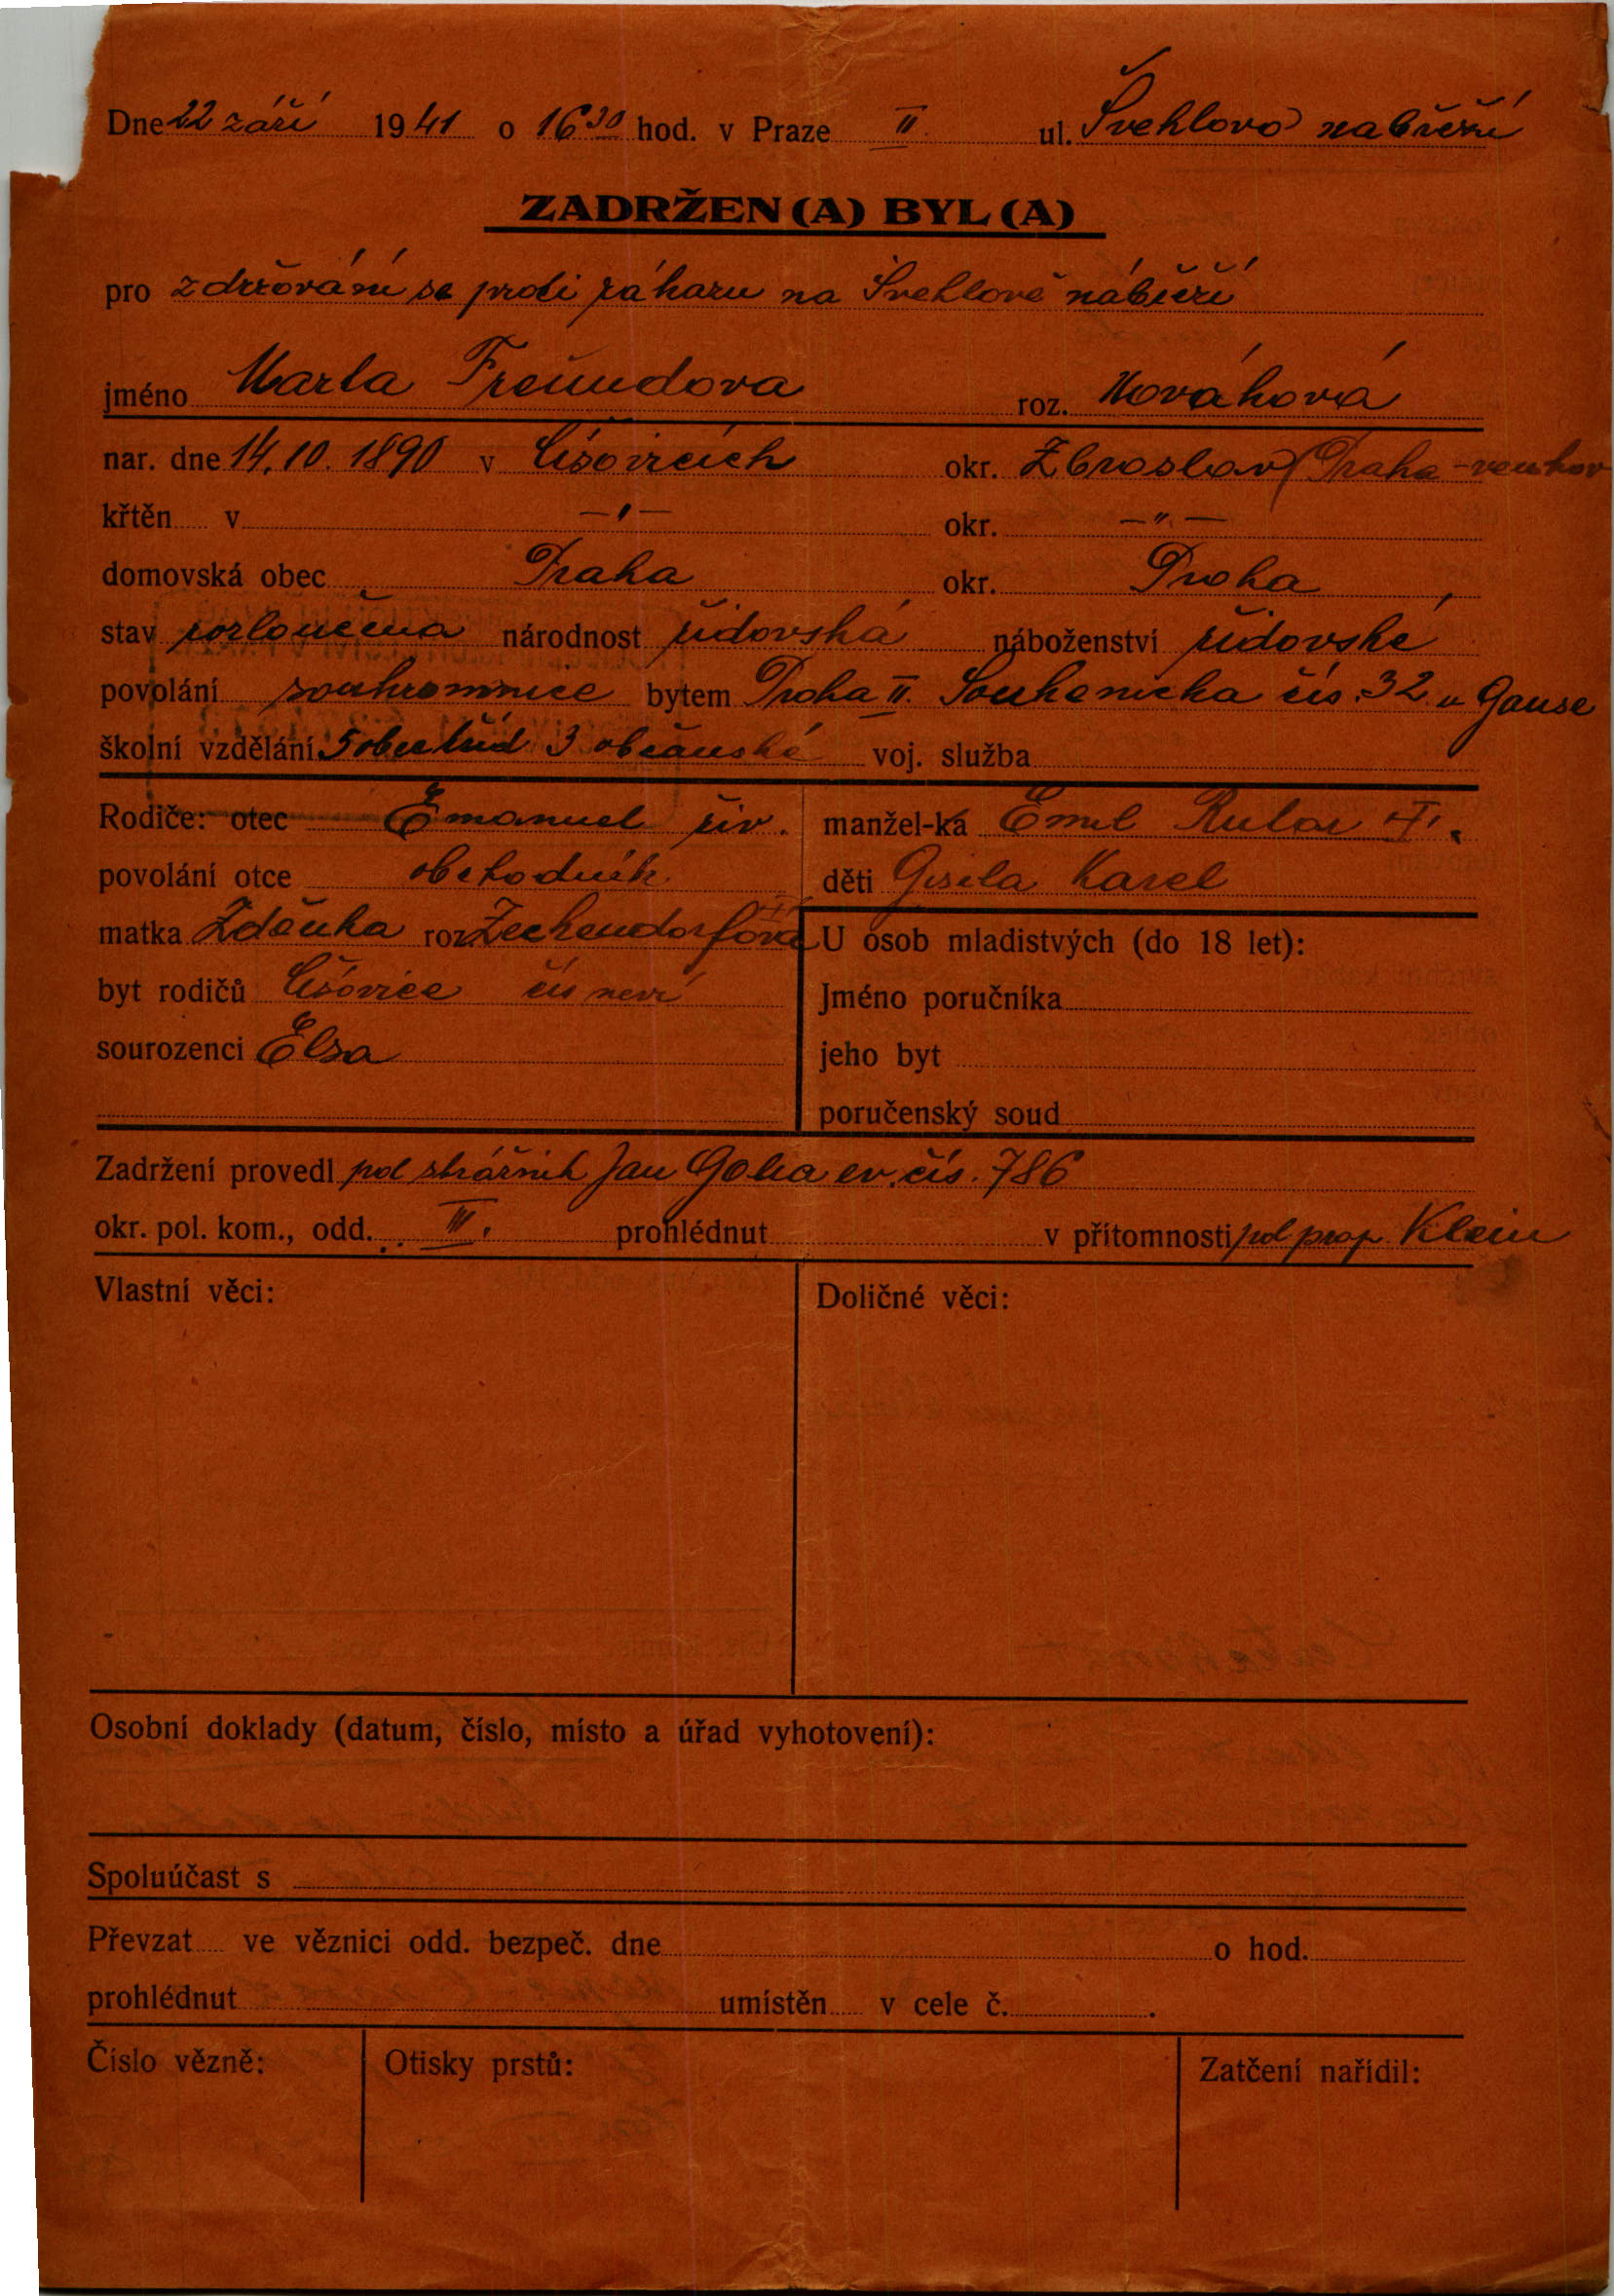 Dne 22 září 1941 o 16³⁰ hod. v Praze II. ul. Švehlovo nábřeží
ZADRŽEN(A) BYL(A)
pro zdržování se proti zákazu na Švehlově nábřeží
jméno Marta Freundova roz. Nováková
nar. dne 14.10.1890 v Líšovicích okr. Zbraslav (Praha-venkov
křtěn v —"— okr. —"—
domovská obec Praha okr. Praha
stav rozloučena národnost židovská náboženství židovské
povolání soukromnice bytem Praha II. Soukenická čís. 32 u Ganse
školní vzdělání 5 obec tříd 3 občanské voj. služba
Rodiče: otec Emanuel živ. manžel-ka Emil
povolání otce obchodník děti Gisela Karel
matka Zdeňka roz. Zechendorfová U osob mladistvých (do 18 let):
byt rodičů Líšovice čís neví Jméno poručníka
sourozenci Elsa jeho byt
poručenský soud
Zadržení provedl pol strážník Jan ev. čís. 786
okr. pol. kom., odd. III. prohlédnut v přítomnosti pol prap. Klein
Vlastní věci: Doličné věci:
Osobní doklady (datum, číslo, místo a úřad vyhotovení):
Spoluúčast s
Převzat ve věznici odd. bezpeč. dne o hod.
prohlédnut umístěn v cele č. .
Číslo vězně: Otisky prstů: Zatčení nařídil: